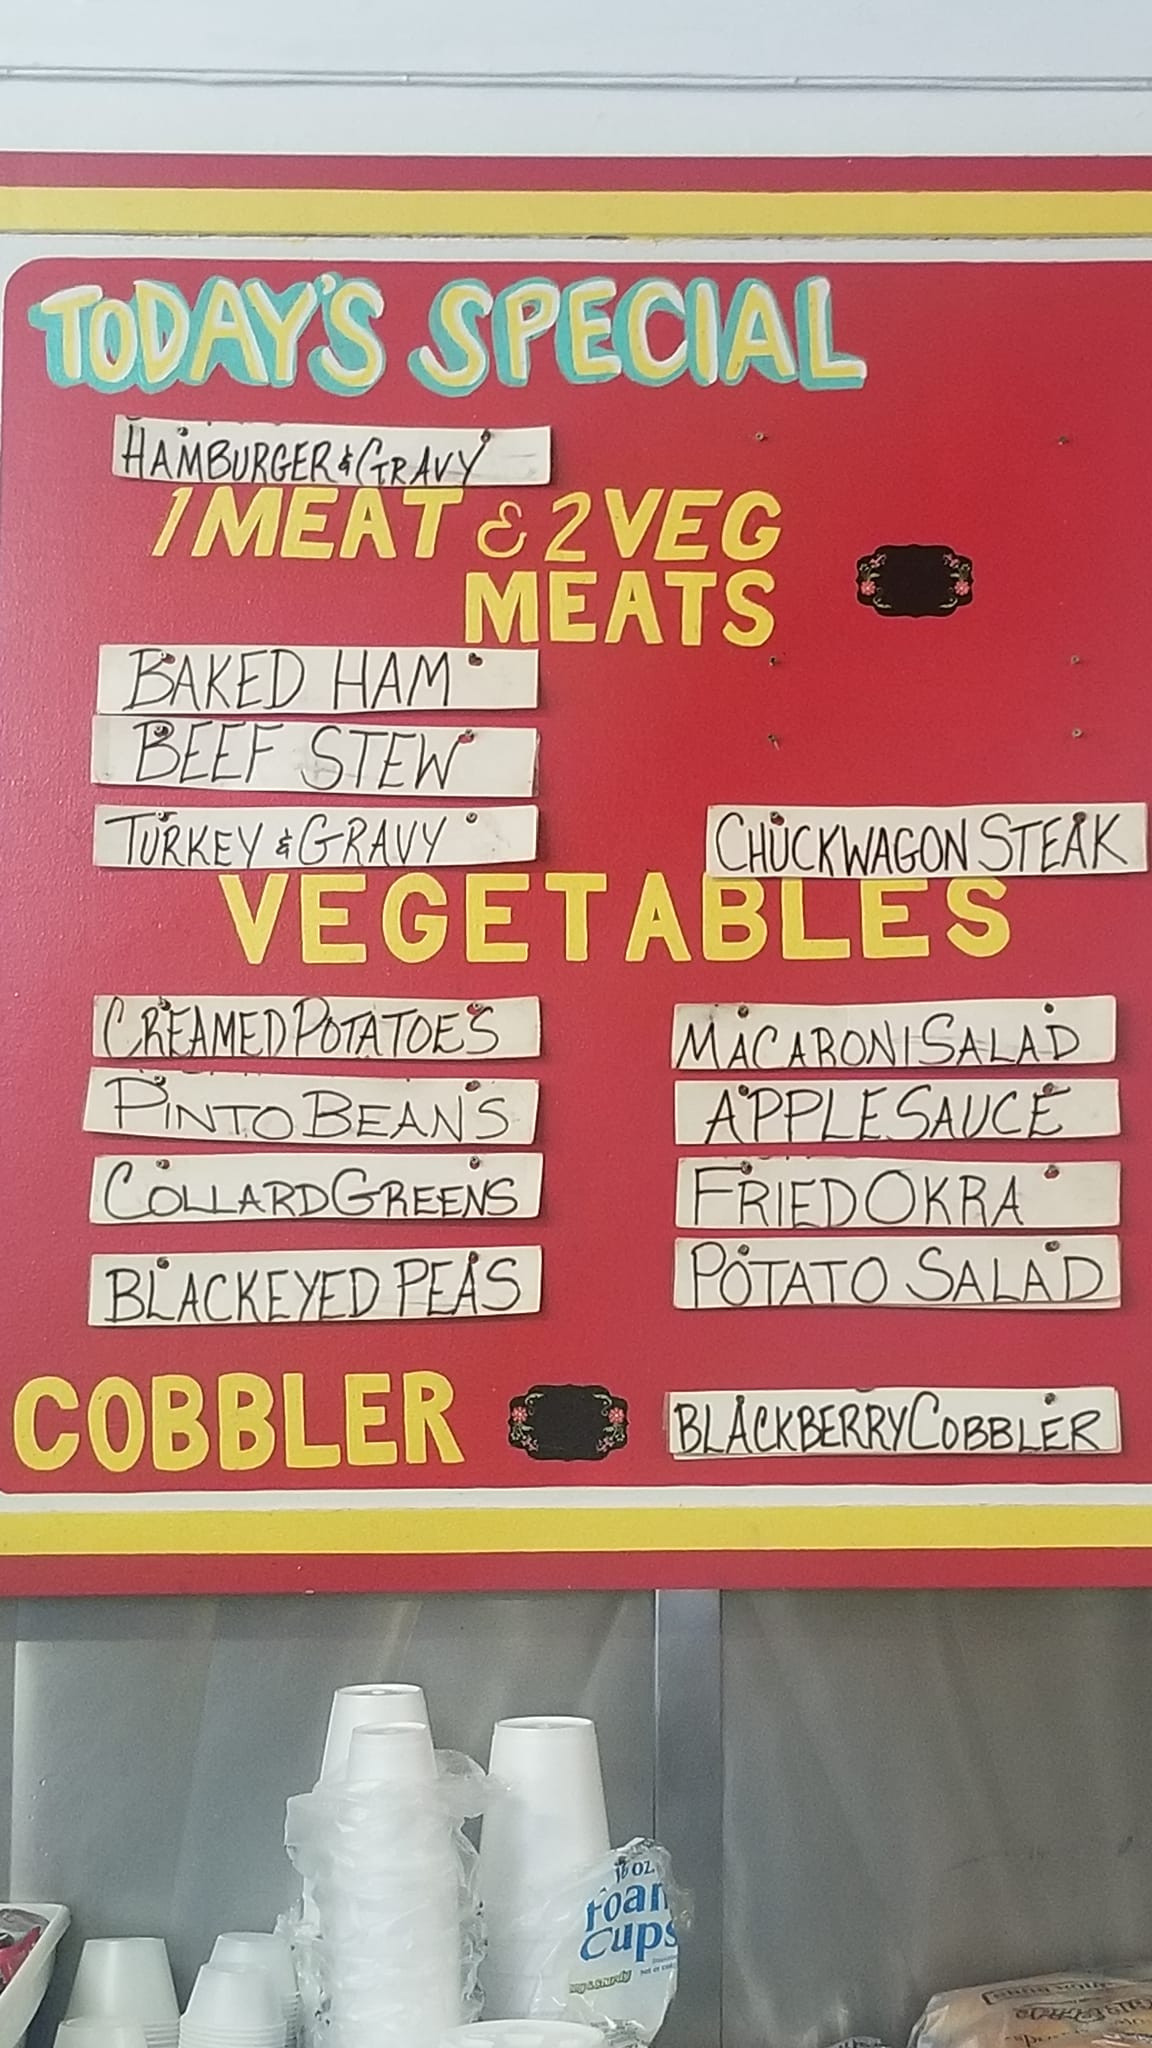 TODAY'S SPECIAL
HAMBURGER & GRAVY
1 MEAT & 2 VEG
MEATS
BAKED HAM
BEEF STEW
TURKEY & GRAVY
CHUCKWAGON STEAK
VEGETABLES
CREAMED POTATOES
MACARONI SALAD
PINTO BEANS
APPLE SAUCE
COLLARD GREENS
FRIED OKRA
BLACKEYED PEAS
POTATO SALAD
COBBLER
BLACKBERRY COBBLER
16 OZ.
Foam
Cups